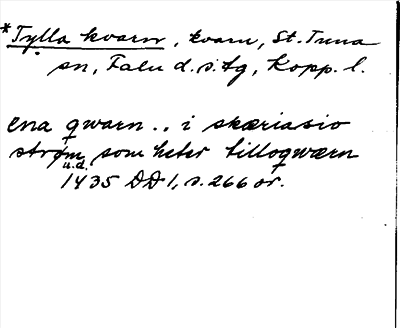 *Tylla kvarn, kvarn, St. Tuna
sn, Falu d.s:tg, Kopp. l.
ena qwarn .. i skæriasio
strøm som heter tilloqwærn
u.d.
1435 DD 1, s. 266 or.